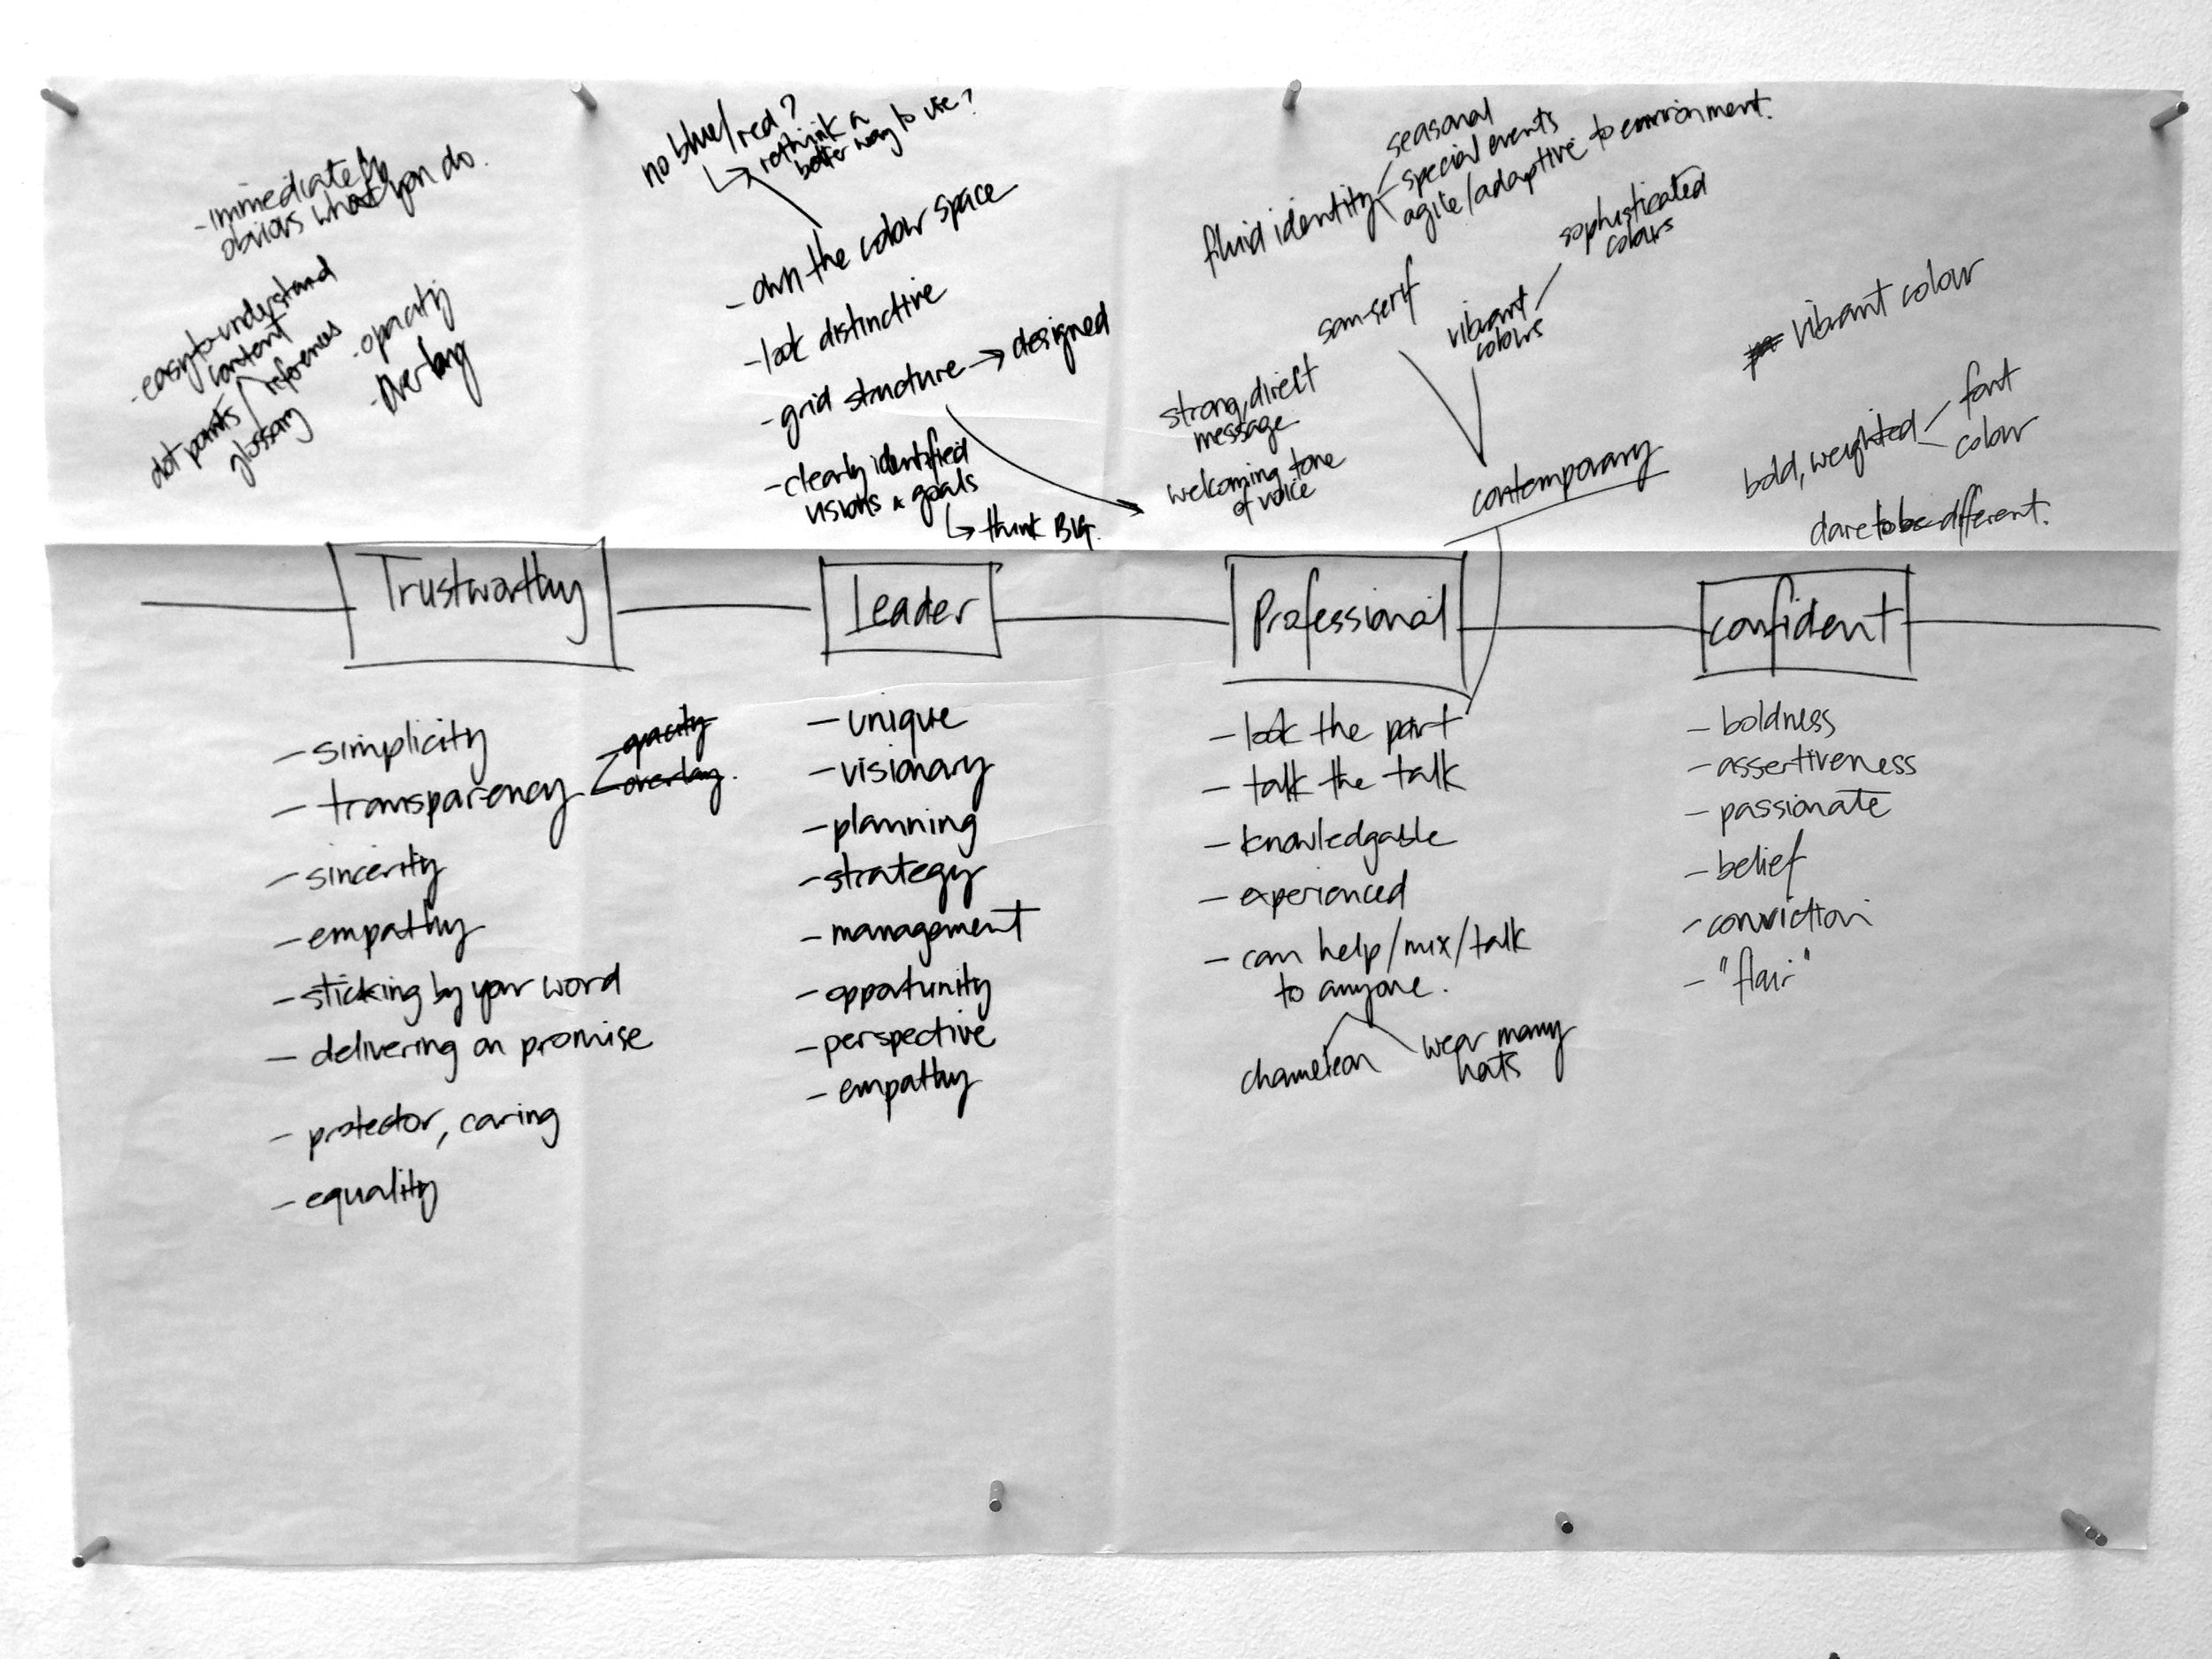 - immediately
obvious what you do.
- easy to understand
content
dot points / references
glossary
- opacity
- overlay
no blue/red?
rethink a
better way to use?
- own the colour space
- look distinctive
- grid structure → designed
- clearly identified
visions & goals
↳ think BIG.
fluid identity
seasonal
special events
agile/adaptive to environment.
san-serif
vibrant
colours
sophisticated
colours
strong, direct
message
welcoming tone
of voice
contemporary
vibrant colour
bold, weighted
font
colour
dare to be different.
Trustworthy
Leader
Professional
confident
- simplicity
- transparency
opacity
overlay.
- sincerity
- empathy
- sticking by your word
- delivering on promise
- protector, caring
- equality
- unique
- visionary
- planning
- strategy
- management
- oppatunity
- perspective
- empathy
- look the part
- talk the talk
- knowledgable
- experienced
- can help/mix/talk
to anyone.
chameleon
wear many
hats
- boldness
- assertiveness
- passionate
- belief
- conviction
- "flair"